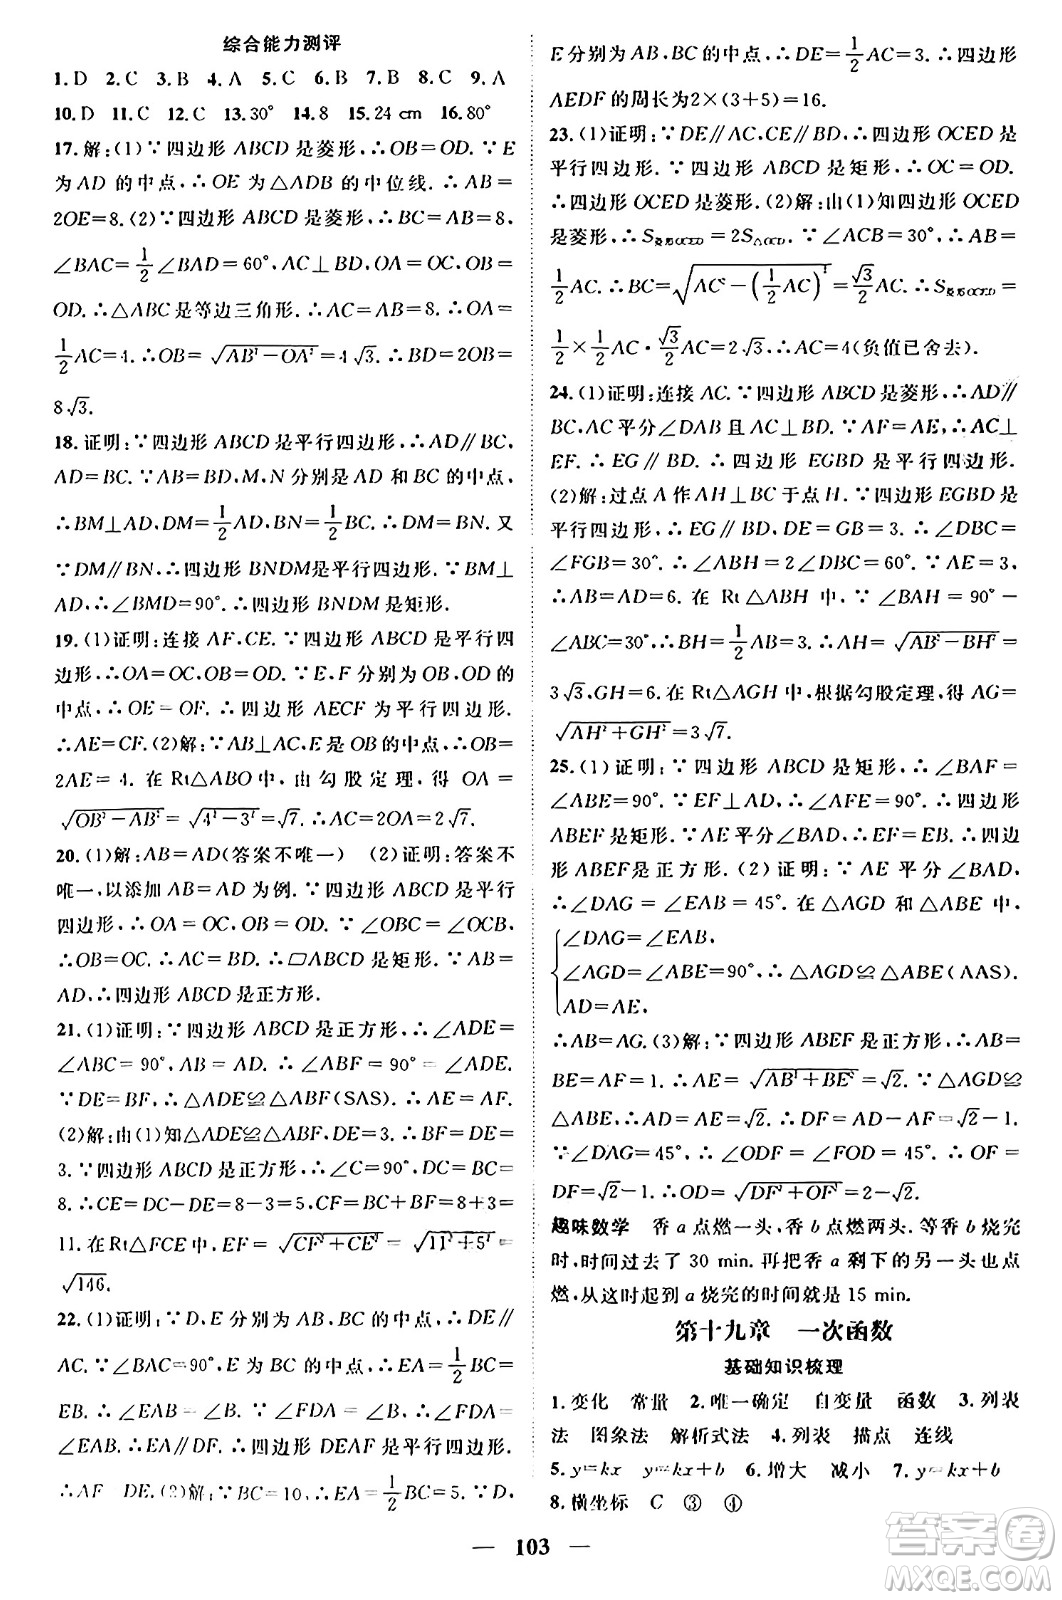 综合能力测评
1.D 2.C 3.B 4.A 5.C 6.B 7.B 8.C 9.A
10.D 11.C 12.C 13.30° 14.8 15.24 cm 16.80°
17.解:(1)∵四边形 ABCD 是菱形,∴OB=OD.∵E
为 AD 的中点,∴OE 为△ADB 的中位线.∴AB=
2OE=8.(2)∵四边形 ABCD 是菱形,∴BC=AB=8,
∠BAC=1/2∠BAD=60°,AC⊥BD,OA=OC,OB=
OD.∴△ABC 是等边三角形.∴AC=AB=8.∴OA=
1/2AC=4.∴OB=√(AB²-OA²)=4√3.∴BD=2OB=
8√3.
18.证明:∵四边形 ABCD 是平行四边形,∴AD∥BC,
AD=BC.∵AB=BD,M,N 分别是 AD 和 BC 的中点,
∴BM⊥AD,DM=1/2AD,BN=1/2BC.∴DM=BN.又
∵DM∥BN,∴四边形 BNDM是平行四边形.∵BM⊥
AD,∴∠BMD=90°.∴四边形 BNDM 是矩形.
19.(1)证明:连接 AF,CE.∵四边形 ABCD 是平行四
边形,∴OA=OC,OB=OD.∵E,F 分别为 OB,OD 的
中点,∴OE=OF.∴四边形 AECF 是平行四边形.
∴AE=CF.(2)解:∵AB⊥AC,E 是 OB 的中点,∴OB=
2AE=4. 在 Rt△ABO 中,由勾股定理,得 OA=
√(OB²-AB²)=√(4²-3²)=√7.∴AC=2OA=2√7.
20.(1)解:AB=AD(答案不唯一) (2)证明:答案不
唯一,以添加 AB=AD 为例.∵四边形 ABCD 是平行
四边形,∴OA=OC,OB=OD.∵∠OBC=∠OCB,
∴OB=OC.∴AC=BD.∴▱ABCD 是矩形.∵AB=
AD,∴四边形 ABCD 是正方形.
21.(1)证明:∵四边形 ABCD 是正方形,∴∠ADE=
∠ABC=90°,AB=AD.∴∠ABF=90°=∠ADE.
∵DE=BF,∴△ADE≌△ABF(SAS).
(2)解:由(1)知△ADE≌△ABF,DE=3.∴BF=DE=
3.∵四边形 ABCD 是正方形,∴∠C=90°,DC=BC=
8.∴CE=DC-DE=8-3=5,FC=BC+BF=8+3=
11.在 Rt△FCE 中,EF=√(CF²+CE²)=√(11²+5²)=
√146.
22.(1)证明:∵D,E 分别为 AB,BC 的中点,∴DE∥
AC.∵∠BAC=90°,E 为 BC 的中点,∴EA=1/2BC=
EB.∴∠EAB=∠ABC.∵∠FDA=∠ABC,∴∠FDA=
∠EAB.∴AE∥DF.∴四边形 DEAF 是平行四边形.
∴AF DE.(2)解:∵BC=10,∴EA=1/2BC=5.∵D,
E 分别为 AB,BC 的中点,∴DE=1/2AC=3.∴四边形
AEDF的周长为2×(3+5)=16.
23.(1)证明:∵DE∥AC,CE∥BD,∴四边形 OCED 是
平行四边形.∵四边形 ABCD 是矩形,∴OC=OD.
∴四边形 OCED 是菱形.(2)解:由(1)知四边形OCED
是菱形,∴S菱形OCED=2S△OCD.∵∠ACB=30°,∴AB=
1/2AC.∴BC=√(AC²-(1/2AC)²)=√3/2AC.∴S菱形OCED=
1/2×1/2AC·√3/2AC=2√3,∴AC=4(负值已舍去).
24.(1)证明:连接 AC.∵四边形 ABCD 是菱形,∴AD∥
BC,AC 平分∠DAB 且 AC⊥BD.∵AF=AE,∴AC⊥
EF.∴EG∥BD.∴四边形 EGBD 是平行四边形.
(2)解:过点 A 作 AH⊥BC 于点 H.∵四边形 EGBD 是
平行四边形,∴EG∥BD,DE=GB=3.∴∠DBC=
∠FGB=30°.∴∠ABH=2∠DBC=60°.∵AE=3,
∴AB=AD=6. 在 Rt△ABH 中,∠BAH=90°-
∠ABC=30°,∴BH=1/2AB=3.∴AH=√(AB²-BH²)=
3√3,GH=6.在 Rt△AGH 中,根据勾股定理,得 AG=
√(AH²+GH²)=3√7.
25.(1)证明:∵四边形 ABCD 是矩形,∴∠BAF=
∠ABE=90°.∵EF⊥AD,∴∠AFE=90°.∴四边形
ABEF 是矩形.∵AE 平分∠BAD,∴EF=EB.∴四边
形 ABEF 是正方形.(2)证明:∵AE 平分∠BAD,
∴∠DAG=∠EAB=45°.在△AGD 和△ABE 中,
∠DAG=∠EAB,
∠AGD=∠ABE=90°,∴△AGD≌△ABE(AAS).
AD=AE,
∴AB=AG.(3)解:∵四边形 ABEF 是正方形,∴AB=
BE=AF=1.∴AE=√(AB²+BE²)=√2.∵△AGD≌
△ABE,∴AD=AE=√2.∴DF=AD-AF=√2-1.
∵∠DAG=45°,∴∠ODF=∠FOD=45°.∴OF=
DF=√2-1.∴OD=√(DF²+OF²)=2-√2.
趣味数学 香 a 点燃一头,香 b 点燃两头.等香 b 烧完
时,时间过去了 30 min.再把香 a 剩下的另一头也点
燃,从这时起到 a 烧完的时间就是 15 min.
第十九章 一次函数
基础知识梳理
1.变化 常量 2.唯一确定 自变量 函数 3.列表
法 图象法 解析式法 4.列表 描点 连线
5.y=kx y=kx+b 6.增大 减小 7.y=kx+b
8.横坐标 C ③ ④
103
答案圈
MXQE.COM